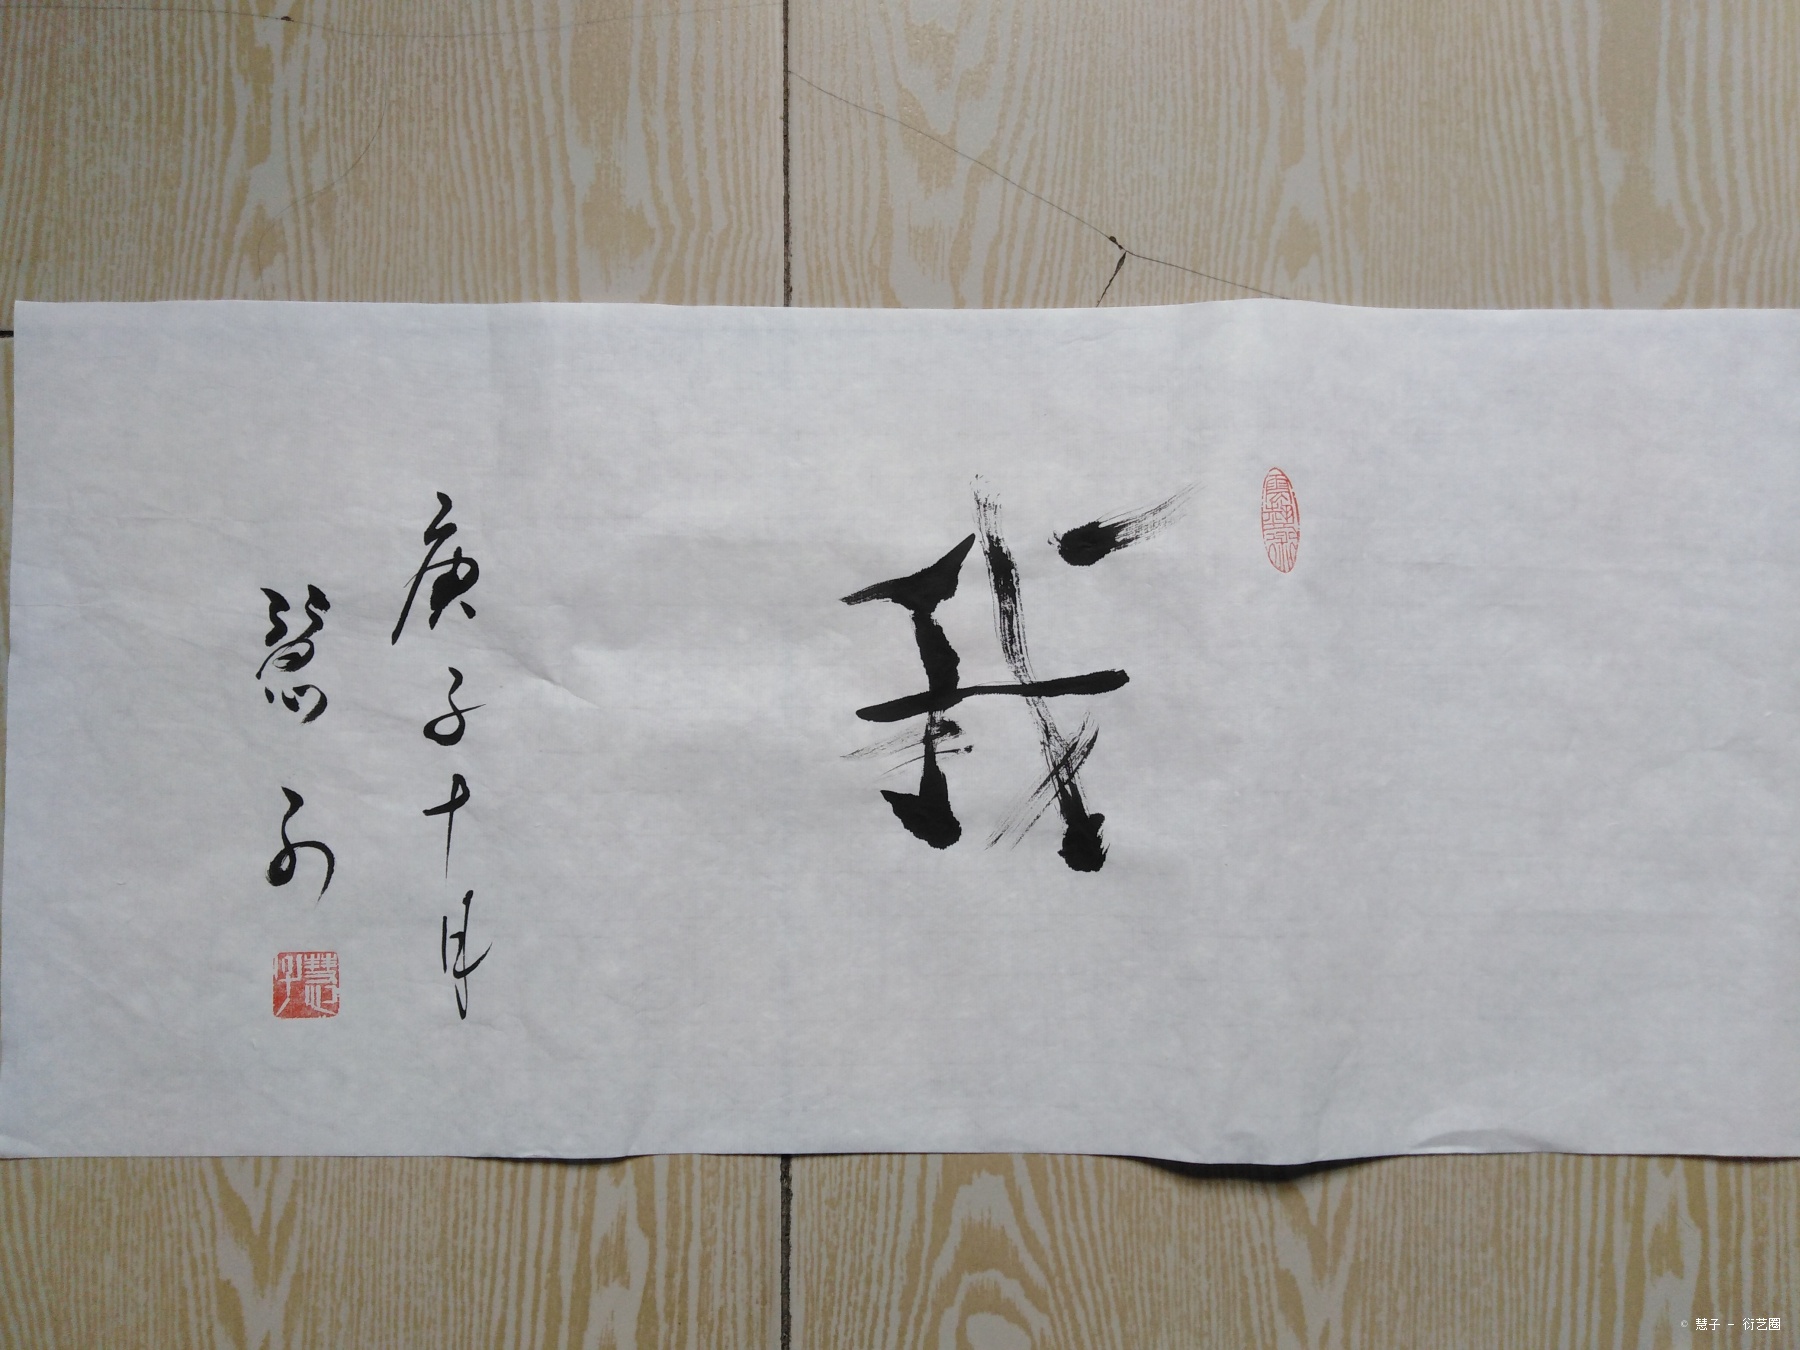 我
庚子十月
慧子
慧子
© 慧子 - 衍艺圈